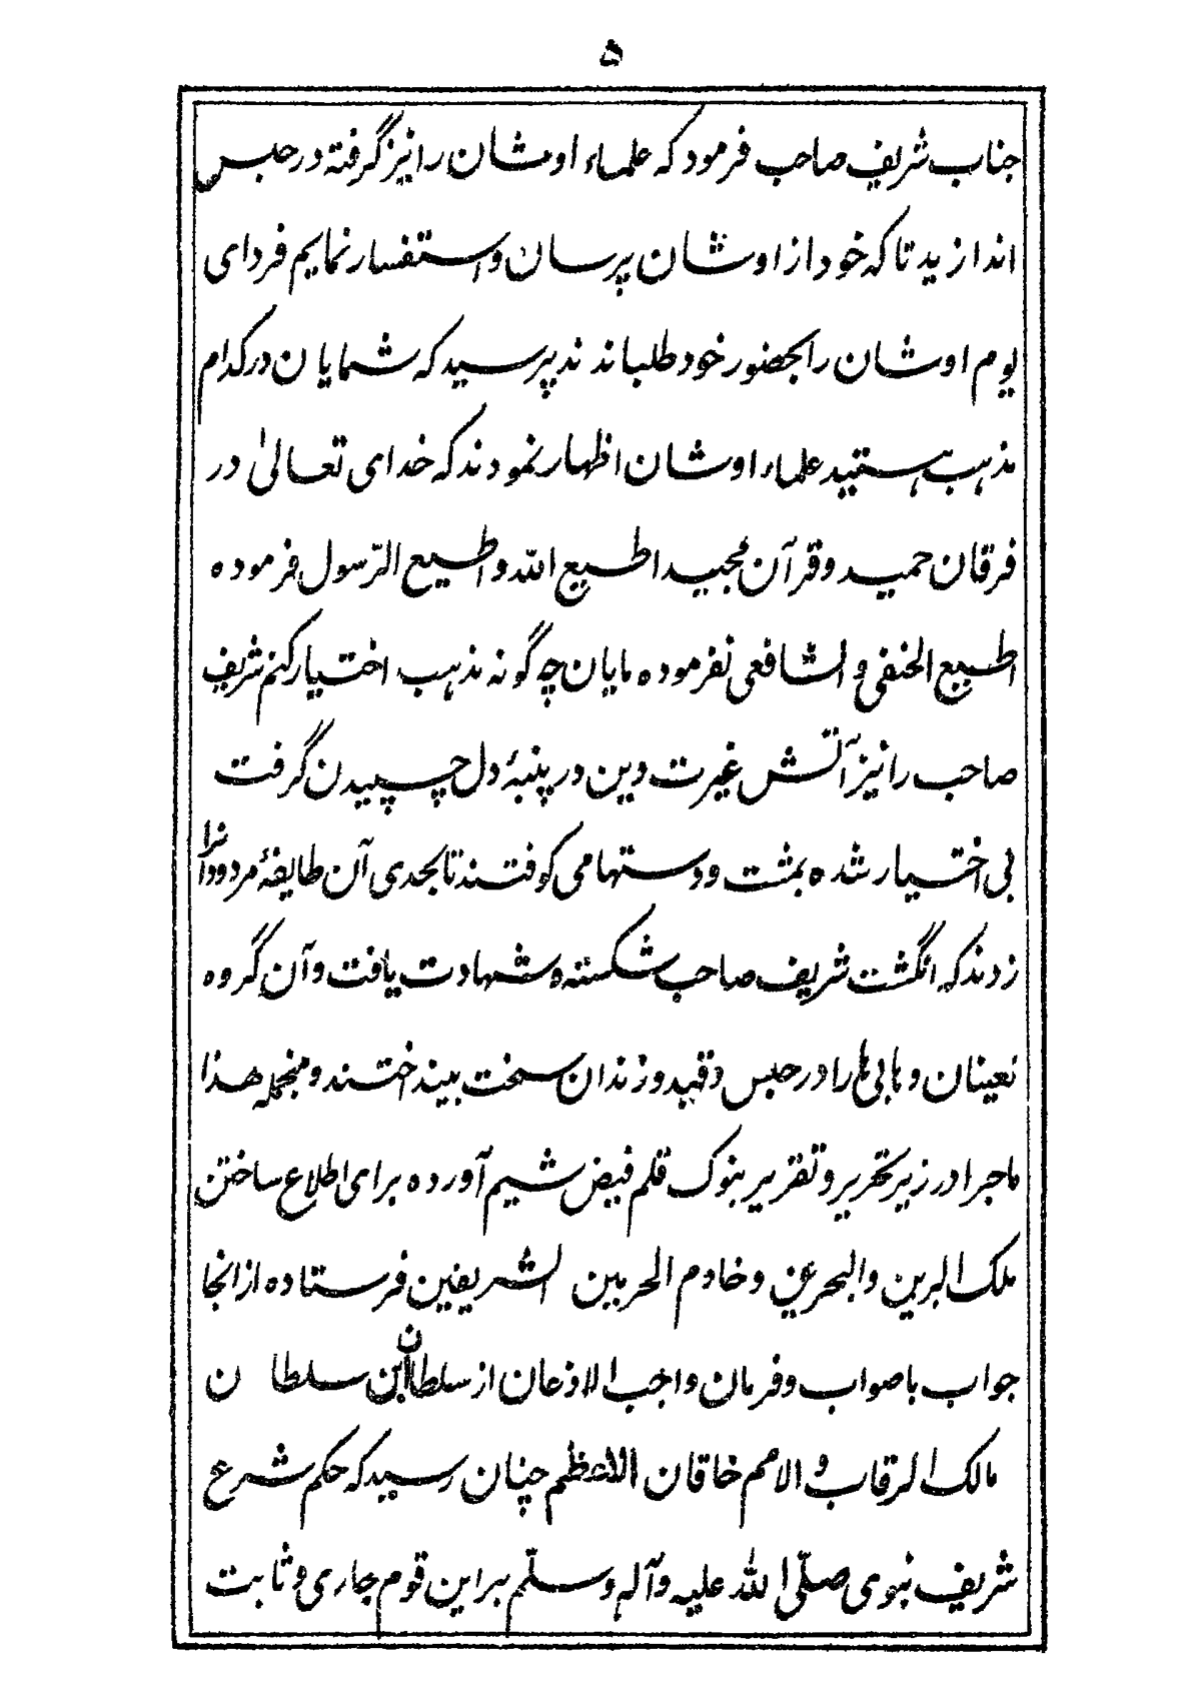 ۵
جناب شریف صاحب فرمود که علماء اوشان را نیز گرفته در حبس
اندازید تا که خود از اوشان پرسان و استفسار نمایم فردای
یوم اوشان را بحضور خود طلباندند پرسید که شمایان در کدام
مذهب هستید علماء اوشان اظهار نمودند که خدای تعالیٰ در
فرقان حمید و قرآن مجید اطیع الله و اطیع الرّسول فرموده
اطیع الحنفی و الشافعی نفرموده مایان چه گونه مذهب اختیار کنم شریف
صاحب را نیز آتش غیرت دین در پنبهٔ دل چسپیدن گرفت
بی اختیار شده بمشت و دستها می کوفتند تا بحدی آن طایفهٔ مردودانرا
زدند که انگشت شریف صاحب شکسته و شهادت یافت و آن گروه
نعینان وهابی ها را در حبس و قید و زندان سخت بینداختند و منجمله هذا
ماجرا در زیر تحریر و تقریر بنوک قلم فیض شیم آورده برای اطلاع ساختن
ملک البرین والبحرین و خادم الحرمین الشریفین فرستاده از انجا
جواب باصواب و فرمان واجب الاذعان از سلطان ابن سلطان
مالک الرقاب و الامم خاقان الاعظم چنان رسید که حکم شرع
شریف نبوی صلّی الله علیه وآله وسلّم بر این قوم جاری و ثابت